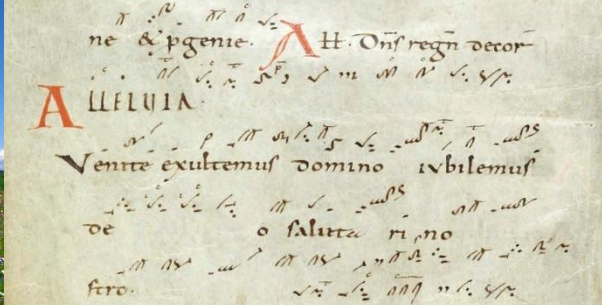 ne & pgenie. A H. Dn̄s regn̄ decor̄
ALLELUIA.
Venite exultemus domino iubilemus
de o saluta ri no
stro.